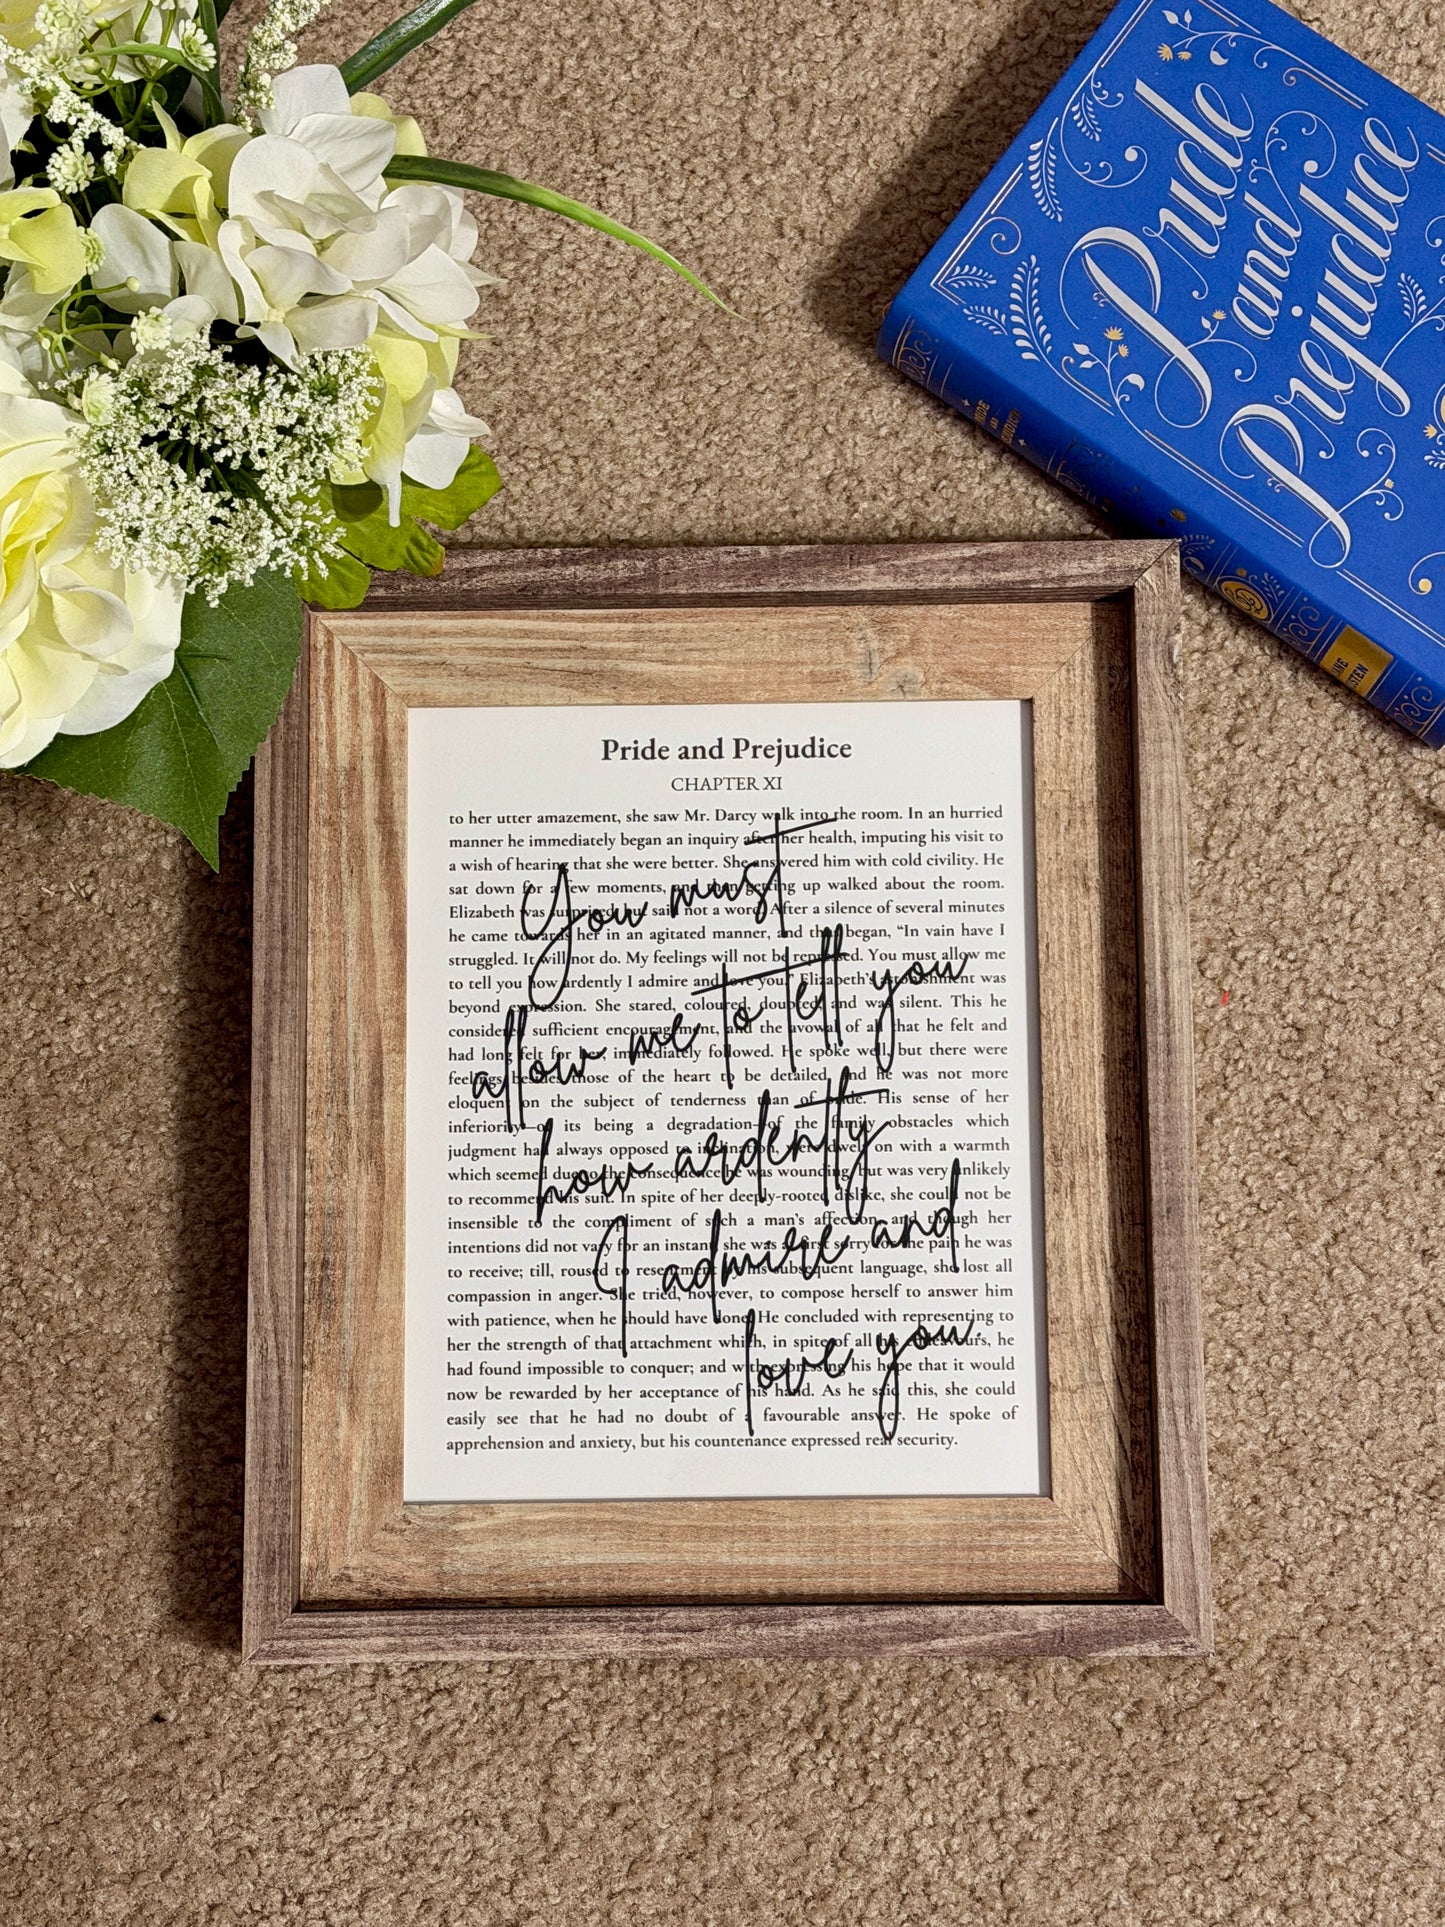 Pride
and
Prejudice
PRIDE
AND
JANE
Pride and Prejudice
CHAPTER XI
to her utter amazement, she saw Mr. Darcy walk into the room. In an hurried
manner he immediately began an inquiry after her health, imputing his visit to
a wish of hearing that she were better. She answered him with cold civility. He
sat down for a few moments, and then getting up walked about the room.
Elizabeth was surprised, but said not a word. After a silence of several minutes
he came towards her in an agitated manner, and thus began, “In vain have I
struggled. It will not do. My feelings will not be repressed. You must allow me
to tell you how ardently I admire and love you.” Elizabeth’s astonishment was
beyond expression. She stared, coloured, doubted, and was silent. This he
considered sufficient encouragement, and the avowal of all that he felt and
had long felt for her, immediately followed. He spoke well, but there were
feelings besides those of the heart to be detailed, and he was not more
eloquent on the subject of tenderness than of pride. His sense of her
inferiority—of its being a degradation—of the family obstacles which
judgment had always opposed to inclination, were dwelt on with a warmth
which seemed due to the consequence he was wounding, but was very unlikely
to recommend his suit. In spite of her deeply-rooted dislike, she could not be
insensible to the compliment of such a man’s affection, and though her
intentions did not vary for an instant, she was at first sorry for the pain he was
to receive; till, roused to resentment by his subsequent language, she lost all
compassion in anger. She tried, however, to compose herself to answer him
with patience, when he should have done. He concluded with representing to
her the strength of that attachment which, in spite of all his endeavours, he
had found impossible to conquer; and with expressing his hope that it would
now be rewarded by her acceptance of his hand. As he said this, she could
easily see that he had no doubt of a favourable answer. He spoke of
apprehension and anxiety, but his countenance expressed real security.
You must
allow me to tell you
how ardently
I admire and
love you.